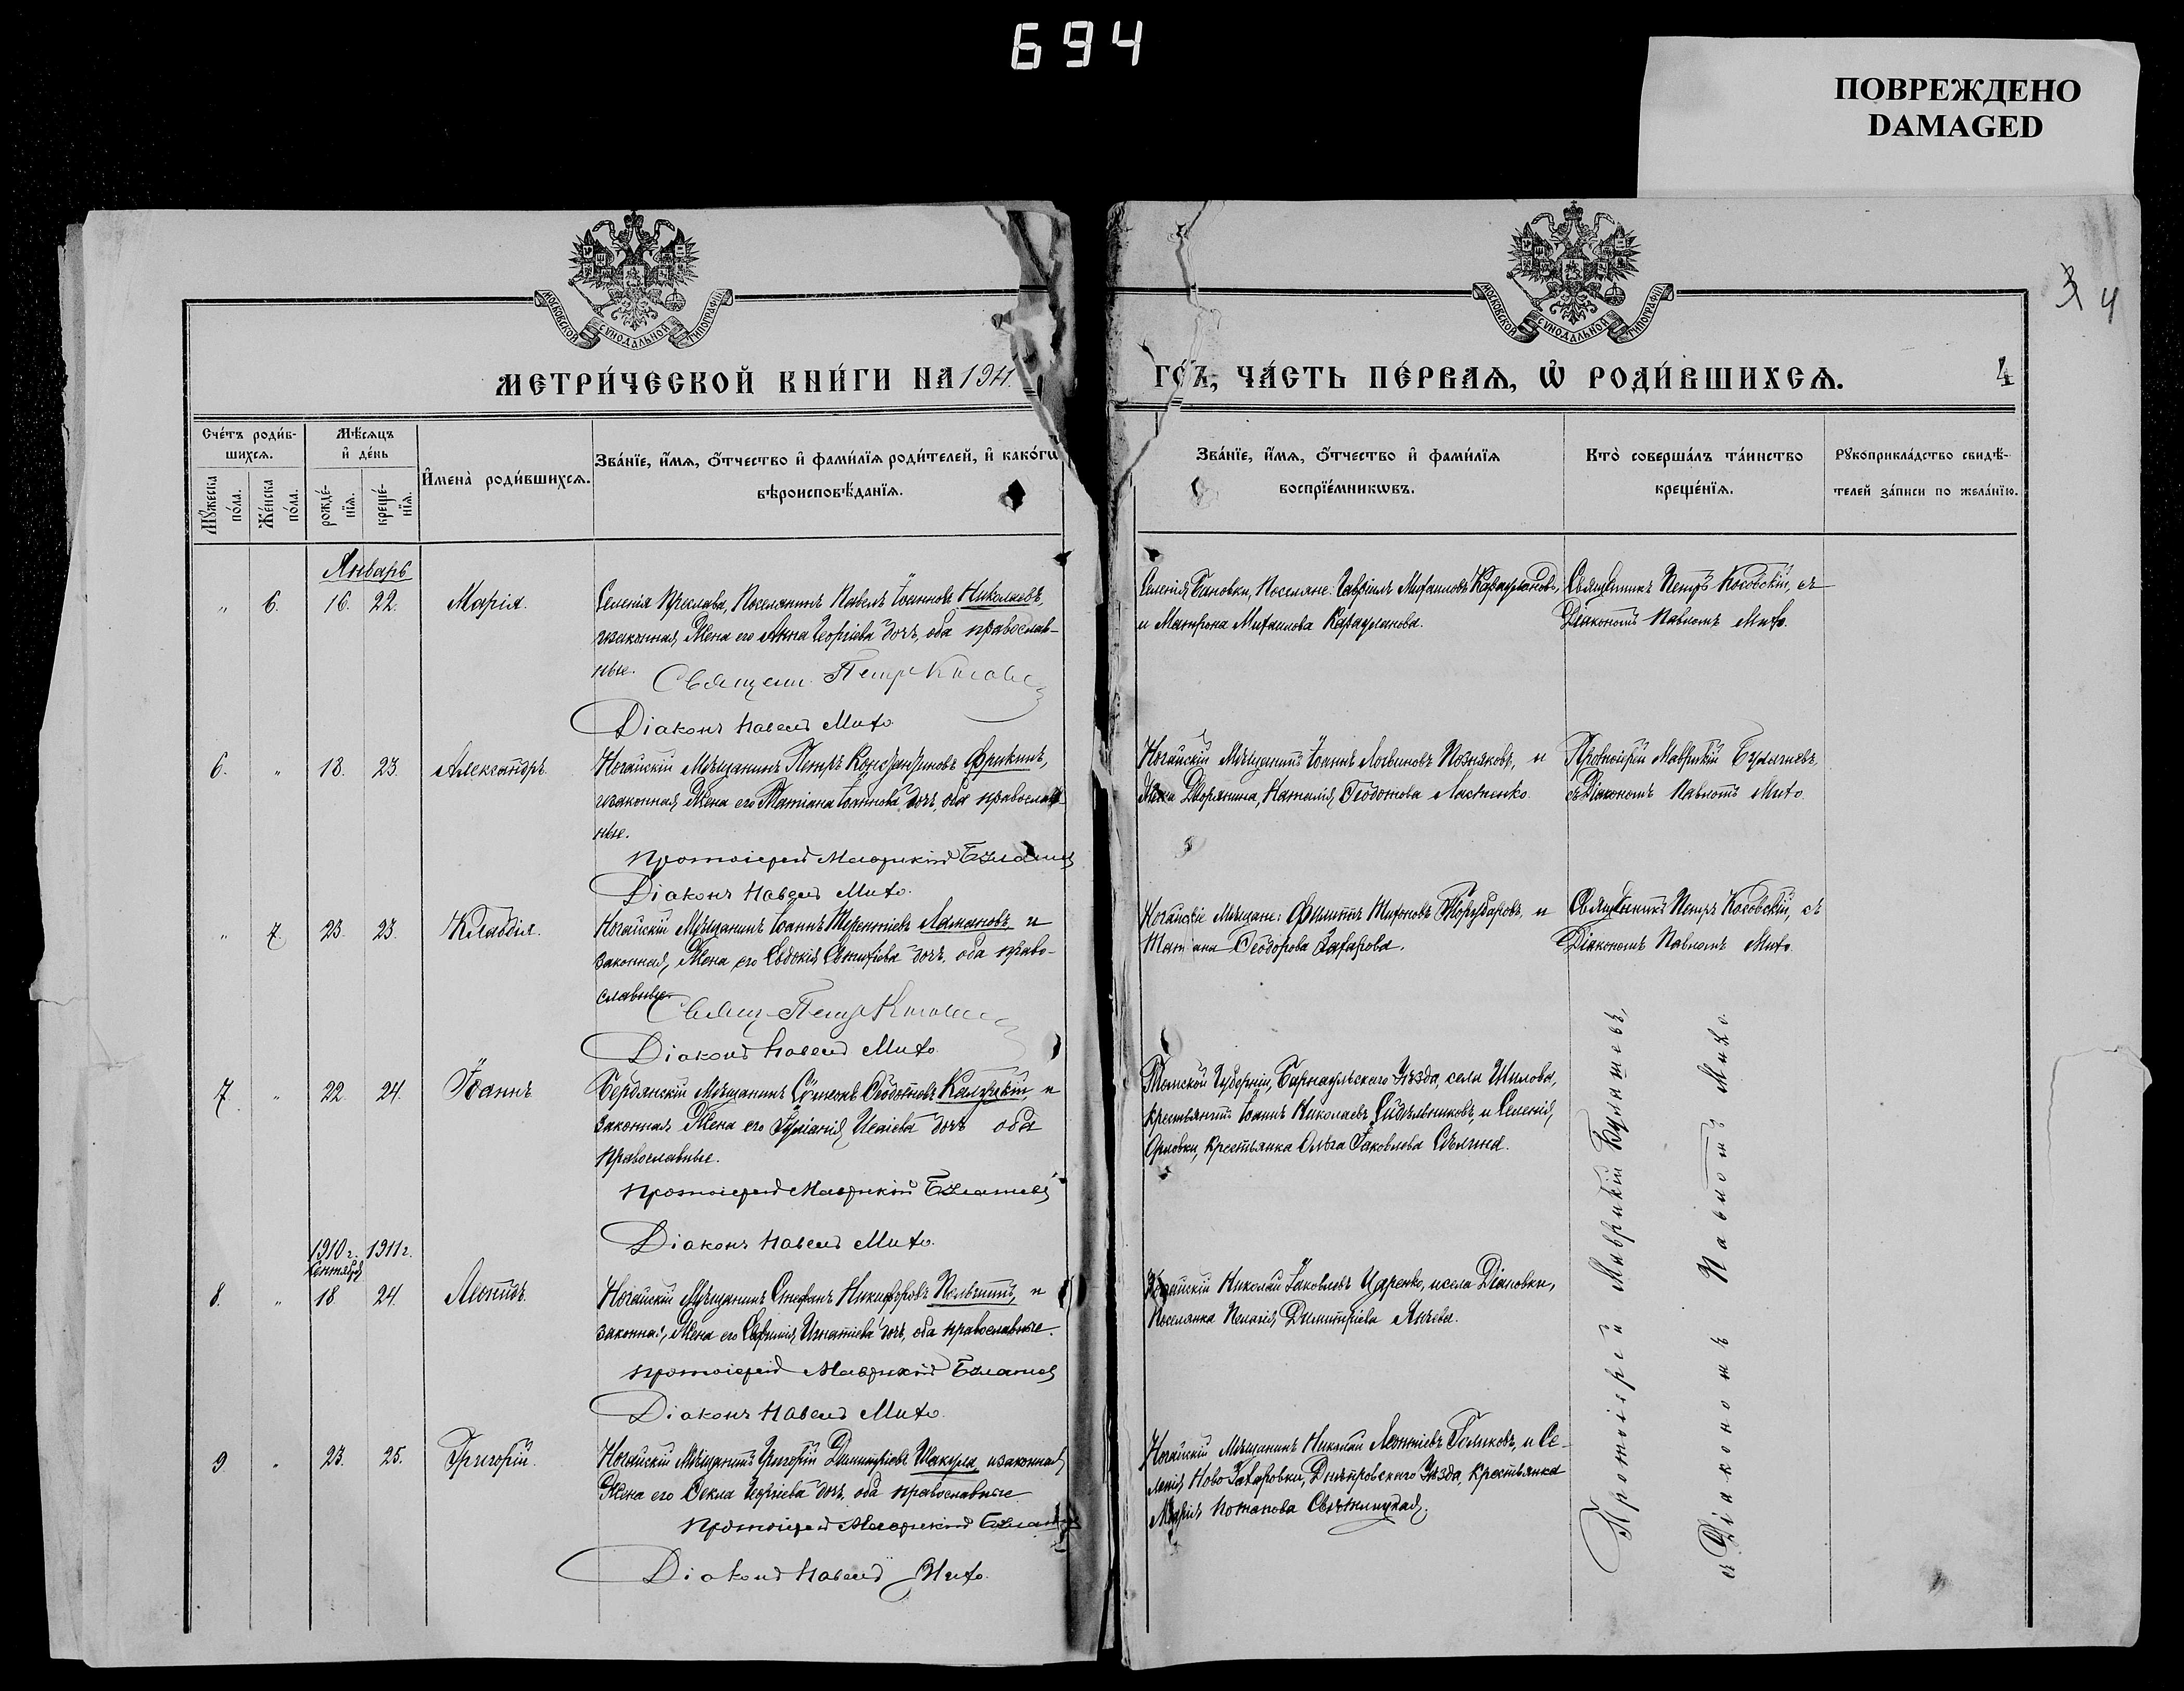 694
ПОВРЕЖДЕНО
DAMAGED
МОСКОВСКОЙ СѴНОДАЛЬНОЙ ТИПОГРАФІИ
МОСКОВСКОЙ СѴНОДАЛЬНОЙ ТИПОГРАФІИ
3 4
МЕТРИ́ЧЕСКОЙ КНИ́ГИ НА 1911.
ГО́ДЪ, ЧА́СТЬ ПЕ́РВАѦ, Ѡ РОДИ́ВШИХСѦ.
4
Сче́тъ роди́в-
шихсѧ.
Мꙋ́жеска по́ла.
Же́нска по́ла.
Мѣ́сѧцъ
и҆ де́нь
рожде́-
нїѧ.
креще́-
нїѧ.
И҆мена̀ роди́вшихсѧ.
Зва́нїе, и҆́мѧ, ѻ҆́тчество и҆ фами́лїѧ роди́телей, и҆ како́гѡ
вѣроисповѣ́данїѧ.
Зва́нїе, и҆́мѧ, ѻ҆́тчество и҆ фами́лїѧ
воспрїе́мникѡвъ.
Кто̀ соверша́лъ та́инство
креще́нїѧ.
Рꙋкоприкла́дство свидѣ́-
телей за́писи по жела́нїю.
Январь
" 6. 16. 22. Марія.
Селенія Преслава, Поселянинъ Павелъ Іоанновъ Николаевъ,
и законная Жена его Анна Георгіева дочь, оба православ-
ные.
Священ. Петр Косовс
Діаконъ Павелъ Мито.
Селенія Бановки, Поселяне: Гавріилъ Михаиловъ Карауланов,
и Матрона Михаилова Карауланова.
Священникъ Петръ Косовскій, съ
Діакономъ Павломъ Мито.
6. " 18. 23. Александръ.
Ногайскій Мѣщанинъ Петръ Константиновъ Фрикинъ,
и законная Жена его Татіана Іоаннова дочь, оба православ-
ные.
Протоіерей Маврикій Булашев
Діаконъ Павелъ Мито.
Ногайскій Мѣщанинъ Іоаннъ Логвиновъ Позняковъ, и
Жена Дворянина, Наталія Ѳеодотова Ластенко.
Протоіерей Маврикій Булашевъ,
съ Діакономъ Павломъ Мито.
" 7. 23. 23. Клавдія.
Ногайскій Мѣщанинъ Іоаннъ Терентіевъ Ломановъ, и
законная Жена его Евдокія Евтихіева дочь, оба право-
славные.
Свящ. Петр Косовс
Діаконъ Павелъ Мито.
Ногайскіе Мѣщане: Филиппъ Тихоновъ и
Татіана Ѳеодорова Захарова.
Священникъ Петръ Косовскій, съ
Діакономъ Павломъ Мито.
7. " 22. 24. Іоаннъ.
Бердянскій Мѣщанинъ Сѵмеонъ Ѳеодотовъ Калужскій, и
законная Жена его Іуліанія Исаіева дочь оба
православные.
Протоіерей Маврикій Булашевъ
Діаконъ Павелъ Мито.
Томской Губерніи, Барнаульскаго Уѣзда, села Шилова,
крестьянинъ Іоаннъ Николаевъ Сидѣльниковъ, и Селенія
Орловки, крестьянка Ольга Іаковлева Сѣлина.
1910 г. 1911 г.
Сентября
8. " 18. 24. Леонидъ.
Ногайскій Мѣщанинъ Стефанъ Никифоровъ и
законная Жена его Евфимія Игнатіева дочь, оба православные.
Протоіерей Маврикій Булашев
Діаконъ Павелъ Мито.
Ногайскій Николай Іаковлевъ Царенко, и села Діановки,
Поселянка Пелагія Димитріева Янчева.
9 " 23. 25. Григорій.
Ногайскій Мѣщанинъ Григорій Димитріевъ Шакула, и законная
Жена его Ѳекла Георгіева дочь, оба православные.
Протоіерей Маврикій Булашев
Діаконъ Павелъ Мито.
Ногайскій Мѣщанинъ Николай Леонтіевъ Голиковъ, и Се-
ленія Ново Захаровки, Днѣпровскаго Уѣзда, Крестьянка
Марія Потапова
Протоіерей Маврикій Булашевъ,
съ Діакономъ Павломъ Мито.